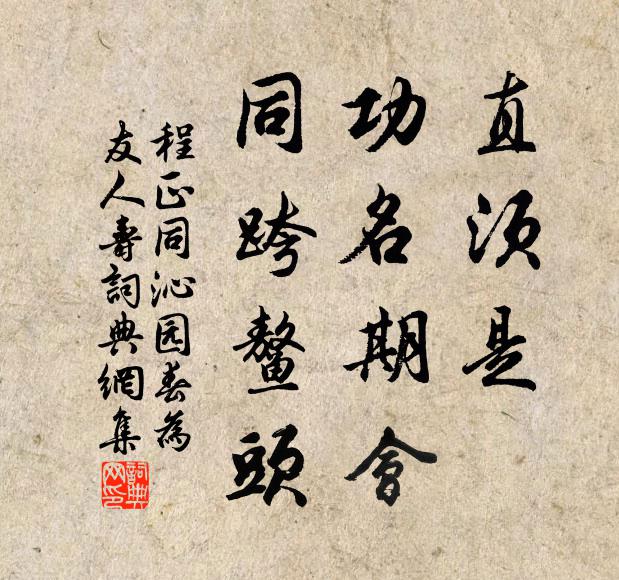 直須是
功名期會
同跨鰲頭
程正同沁园春為
友人壽詞典網集
詞典
网印